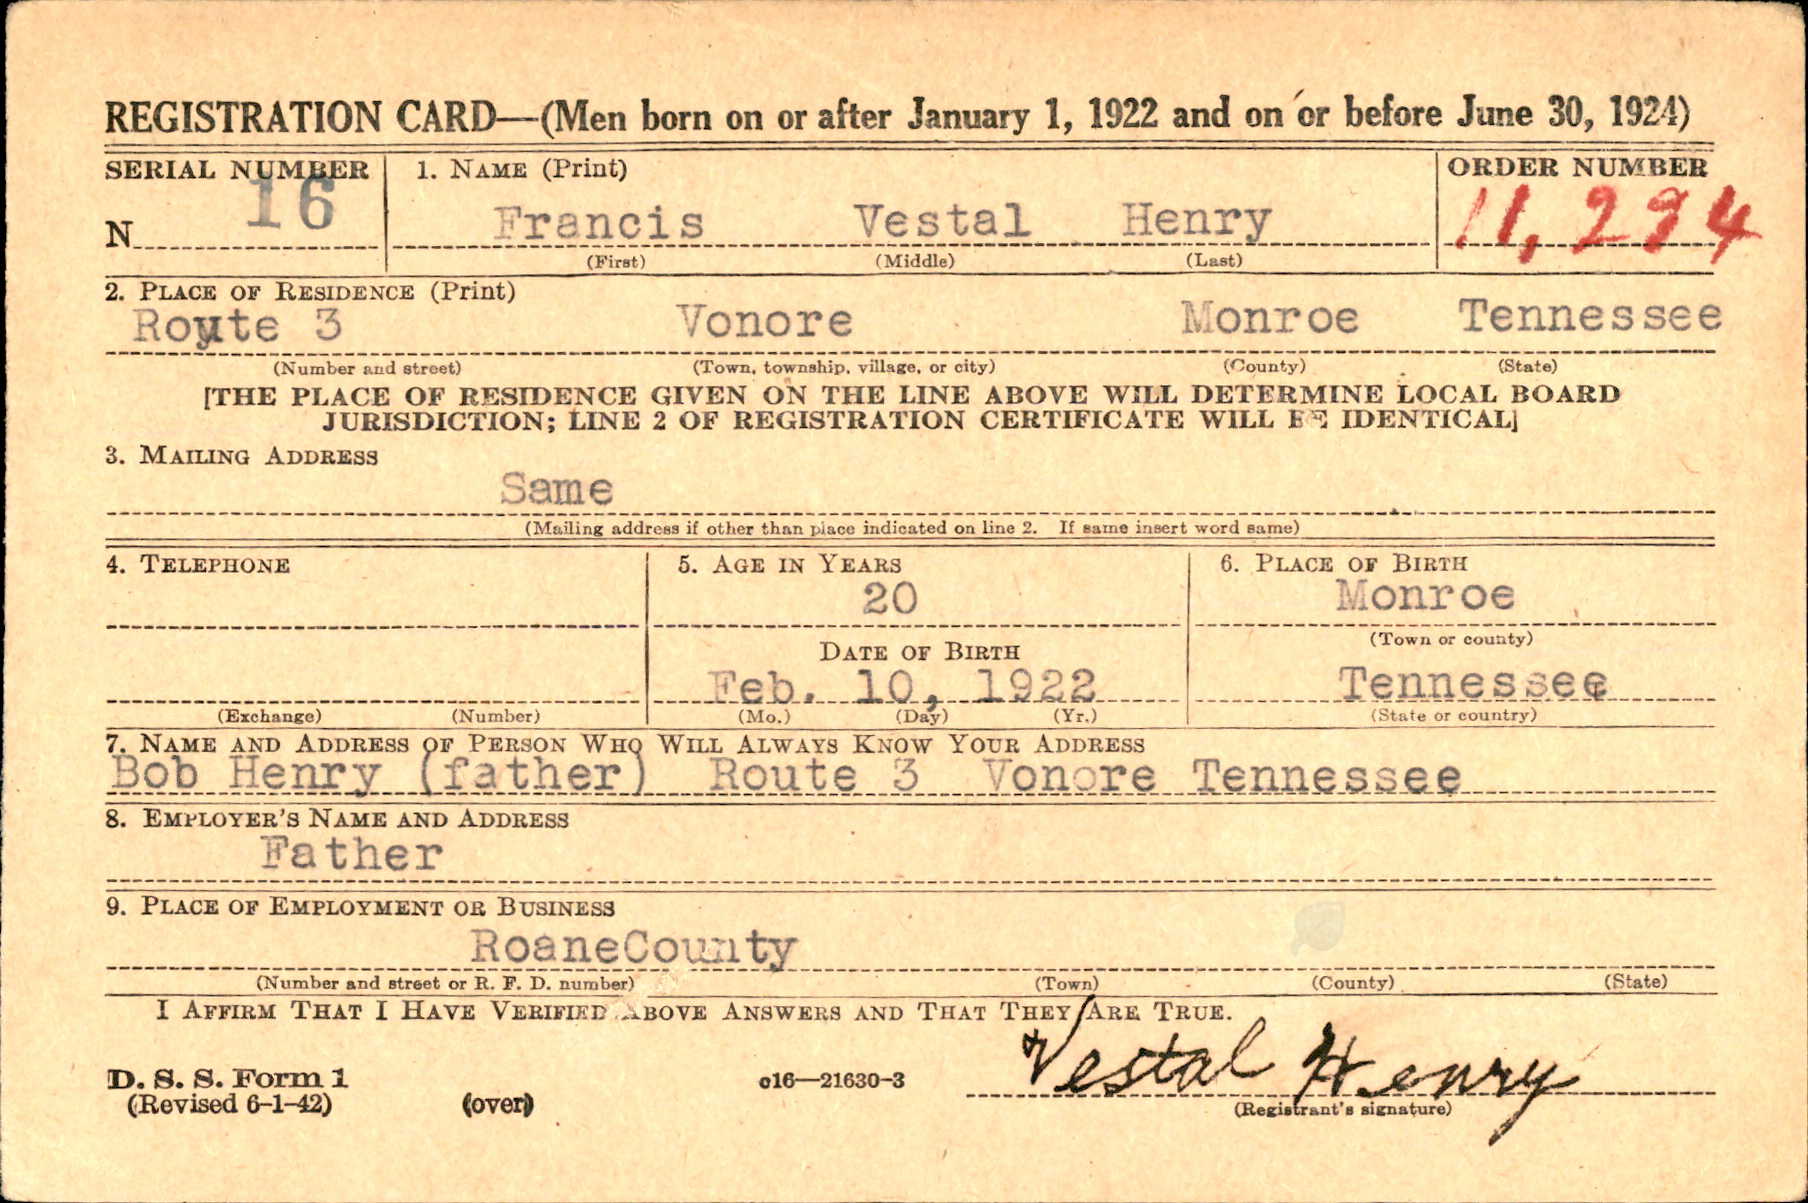 REGISTRATION CARD—(Men born on or after January 1, 1922 and on or before June 30, 1924)
SERIAL NUMBER 1. NAME (Print) ORDER NUMBER
N 16 Francis Vestal Henry 11,294
(First) (Middle) (Last)
2. PLACE OF RESIDENCE (Print)
Route 3 Vonore Monroe Tennessee
(Number and street) (Town, township, village, or city) (County) (State)
[THE PLACE OF RESIDENCE GIVEN ON THE LINE ABOVE WILL DETERMINE LOCAL BOARD
JURISDICTION; LINE 2 OF REGISTRATION CERTIFICATE WILL BE IDENTICAL]
3. MAILING ADDRESS
Same
(Mailing address if other than place indicated on line 2. If same insert word same)
4. TELEPHONE 5. AGE IN YEARS 6. PLACE OF BIRTH
20 Monroe
(Town or county)
DATE OF BIRTH
Feb. 10, 1922 Tennessee
(Exchange) (Number) (Mo.) (Day) (Yr.) (State or country)
7. NAME AND ADDRESS OF PERSON WHO WILL ALWAYS KNOW YOUR ADDRESS
Bob Henry (father) Route 3 Vonore Tennessee
8. EMPLOYER'S NAME AND ADDRESS
Father
9. PLACE OF EMPLOYMENT OR BUSINESS
RoaneCounty
(Number and street or R. F. D. number) (Town) (County) (State)
I AFFIRM THAT I HAVE VERIFIED ABOVE ANSWERS AND THAT THEY ARE TRUE.
Vestal Henry
D. S. S. Form 1 c16—21630-3
(Revised 6-1-42) (over) (Registrant's signature)